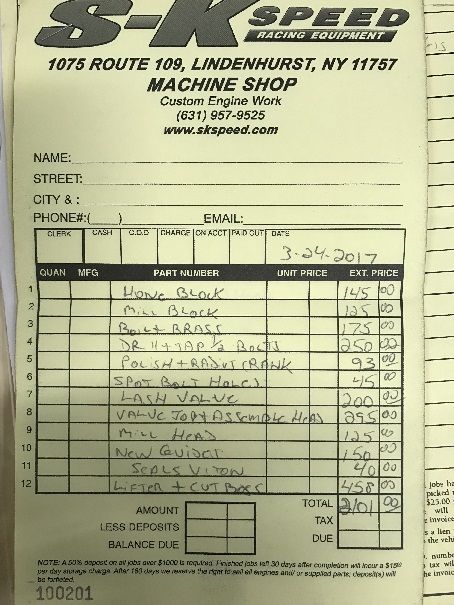 S-K SPEED
RACING EQUIPMENT
1075 ROUTE 109, LINDENHURST, NY 11757
MACHINE SHOP
Custom Engine Work
(631) 957-9525
www.skspeed.com
NAME:
STREET:
CITY & :
PHONE#:( ) EMAIL:
CLERK CASH C.O.D CHARGE ON ACCT PAID OUT DATE
3-24-2017
QUAN MFG PART NUMBER UNIT PRICE EXT. PRICE
1 Hone Block 145 00
2 Mill Block 125 00
3 Boil + BRASS 175 00
4 DRill + TAP 1/2 Bolts 250 00
5 POLISH + RADUS CRANK 93 00
6 SPOT BOLT HOLES 45 00
7 LASH VALVE 200 00
8 VALVE JOB + ASSEMBLE HEAD 295 00
9 Mill HEAD 125 00
10 NEW GUIDES 150 00
11 SEALS VITON 40 00
12 LIFTER + CUT BOSS 458 00
AMOUNT TOTAL 2101 00
LESS DEPOSITS TAX
BALANCE DUE DUE
NOTE: A 50% deposit on all jobs over $1000 is required. Finished jobs left 30 days after completion will incur a $15
per day storage charge. After 180 days we reserve the right to sell all engines and/ or supplied parts, deposits(s) will
be forfeited.
100201
jobs ha
picked
$25.00
will
invoice
s a lien
the veh
numbe
tax wil
he invoic